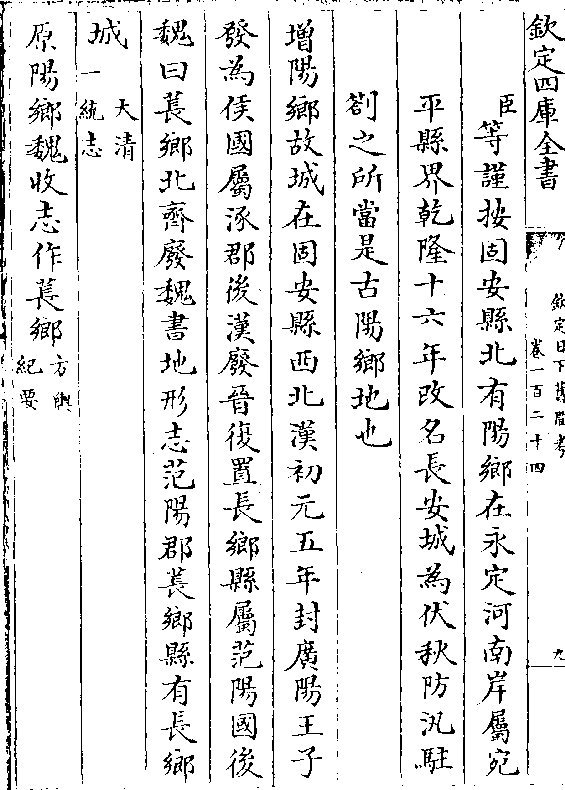 欽定四庫全書
欽定日下舊聞考
卷一百二十四
九
臣等謹按固安縣北有陽鄉在永定河南岸屬宛
平縣界乾隆十六年改名長安城為伏秋防汛駐
劄之所當是古陽鄉地也
增陽鄉故城在固安縣西北漢初元五年封廣陽王子
發為侯國屬涿郡後漢廢晉復置長鄉縣屬范陽國後
魏曰萇鄉北齊廢魏書地形志范陽郡萇鄉縣有長鄉
城大清一統志
原陽鄉魏收志作萇鄉方輿紀要